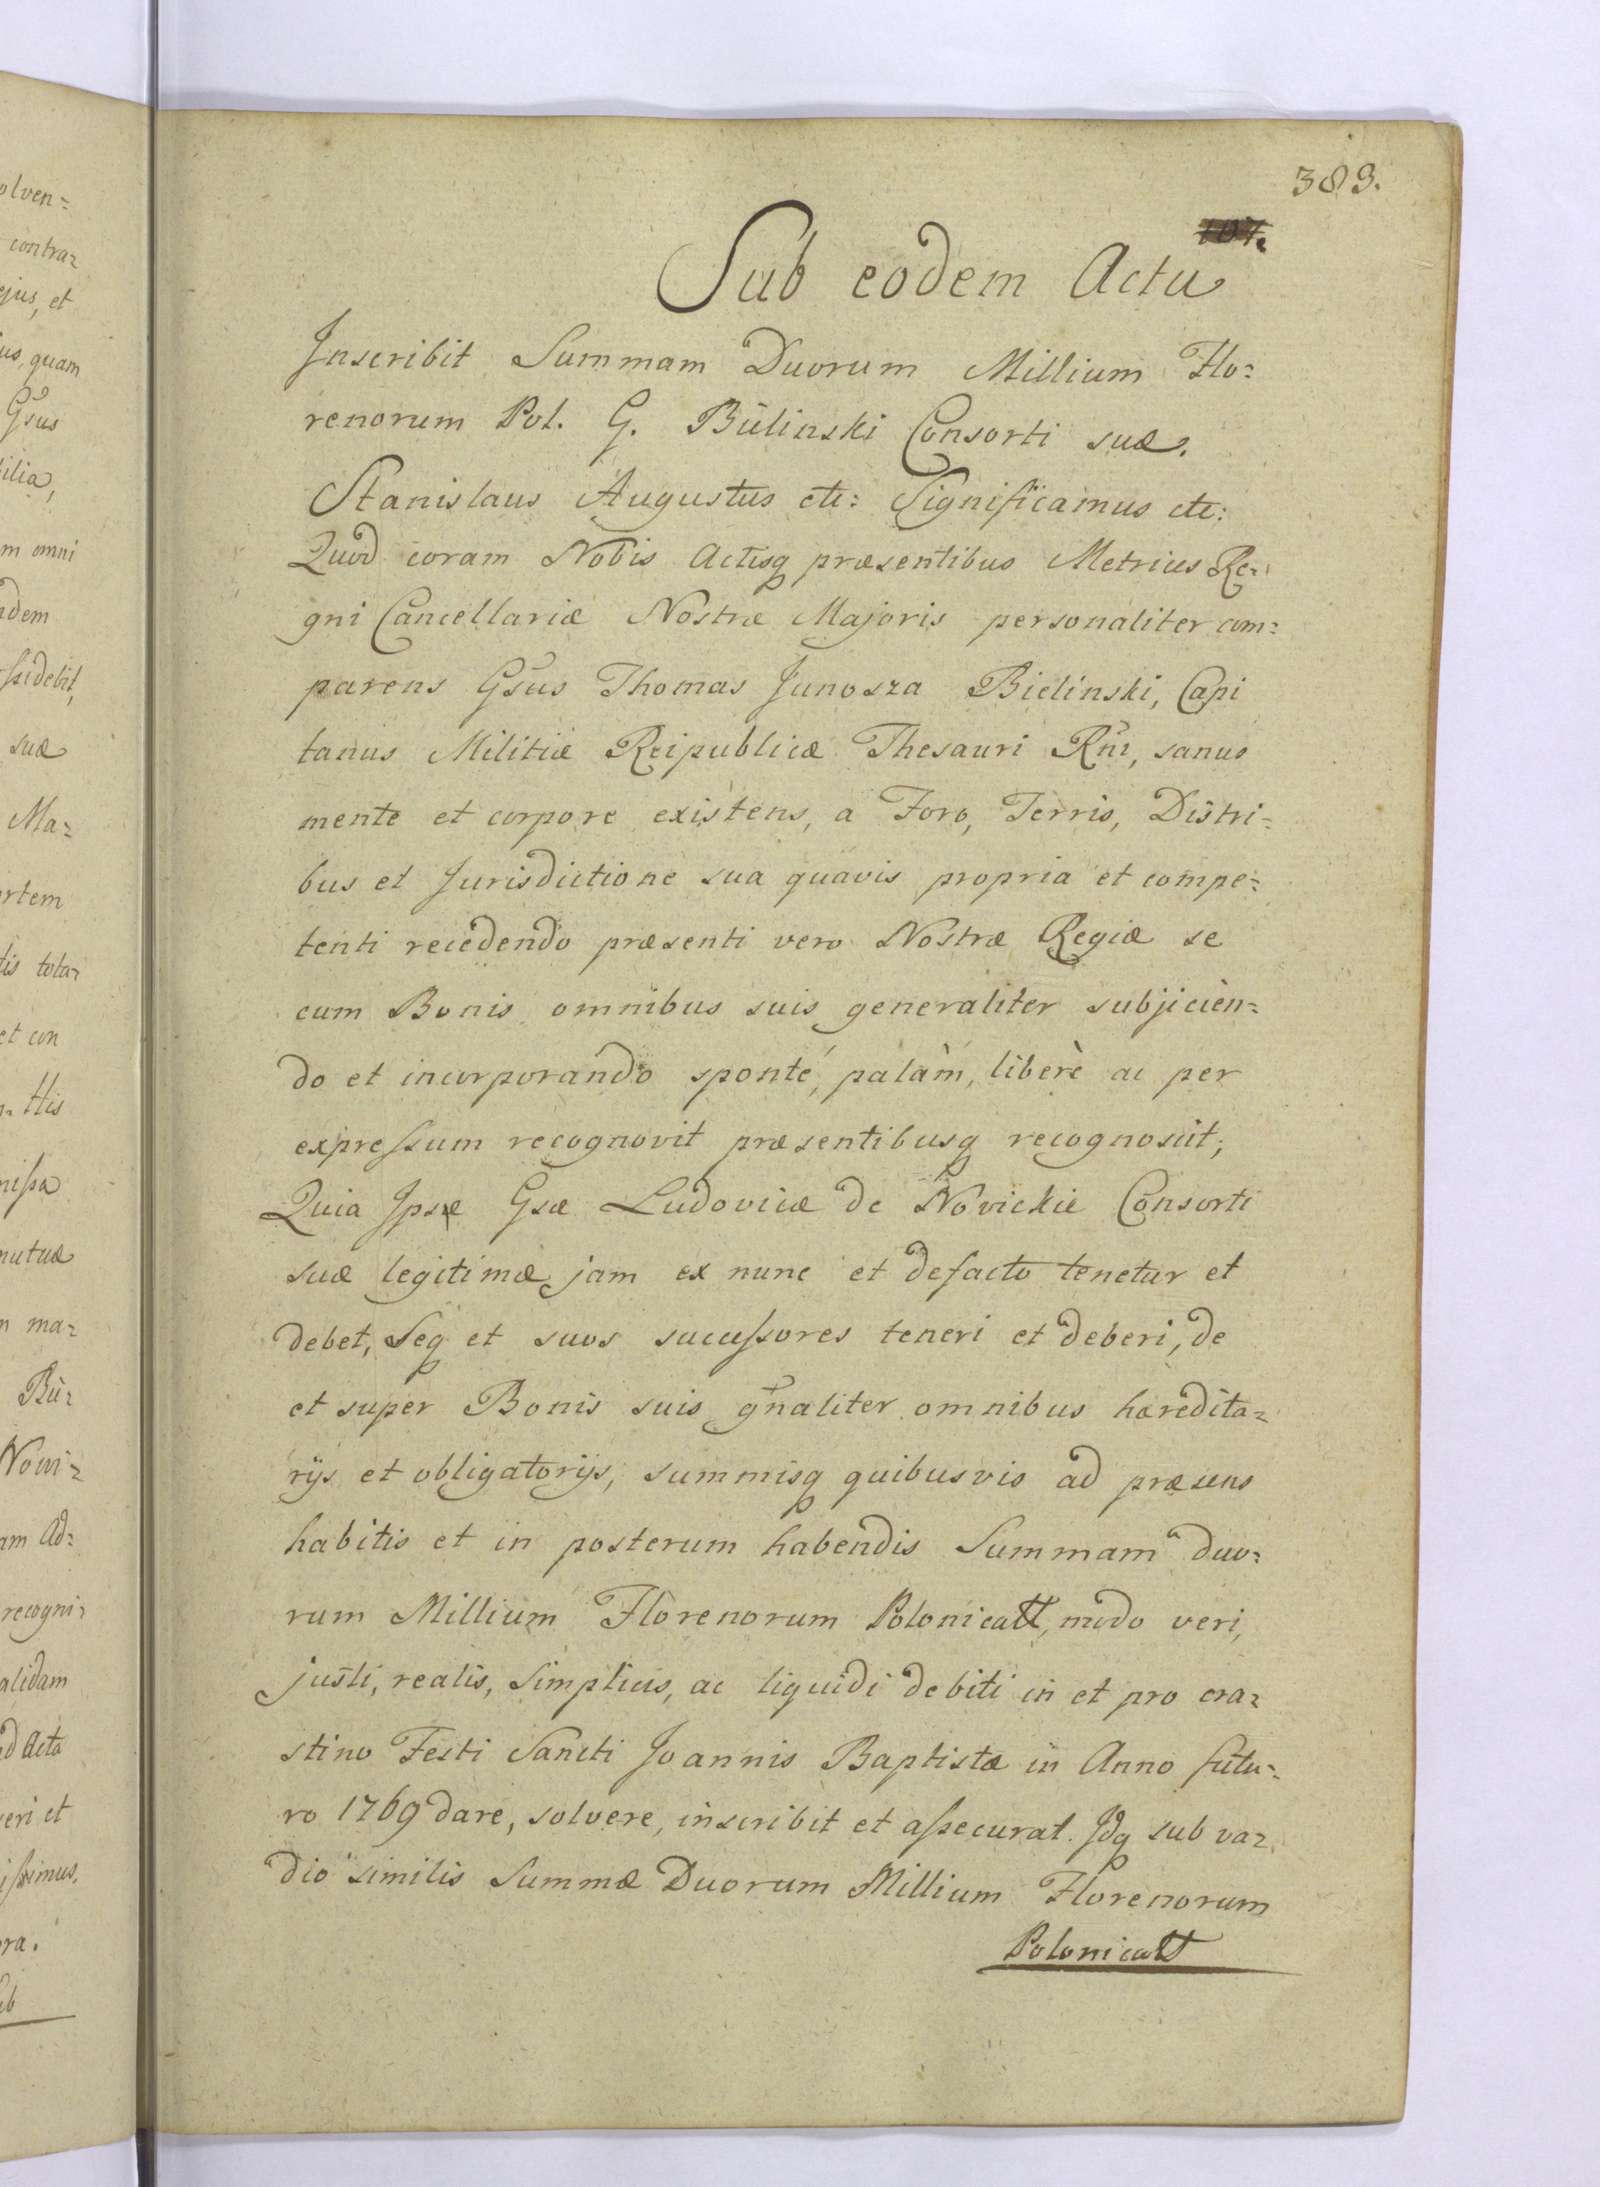 383.
107.
Sub eodem Actu
Inscribit Summam Duorum Millium Flo=
renorum Pol. G. Bielinski Consorti suæ.
Stanislaus Augustus etc: Significamus etc:
Quod coram Nobis Actisq præsentibus Metrices Re=
gni Cancellariæ Nostræ Majoris personaliter com=
parens Gsus Thomas Junosza Bielinski, Capi
tanus Militiæ Reipublicæ Thesauri Rni, sanus
mente et corpore existens, a Foro, Terris, Distri=
bus et Jurisdictione sua quavis propria et compe=
tenti recedendo præsenti vero Nostræ Regiæ se
cum Bonis omnibus suis generaliter subjicien=
do et incorporando sponté, palàm, liberè ac per
expressum recognovit præsentibusq recognoscit;
Quia Ipse Gsæ Ludovicæ de Novickie Consorti
suæ legitimæ jam ex nunc et defacto tenetur et
debet, Seq et suos successores teneri et deberi, de
et super Bonis suis gnaliter omnibus hæredita=
rijs et obligatorijs, summisq quibusvis ad præsens
habitis et in posterum habendis Summam duo=
rum Millium Florenorum Polonicalt, modo veri,
justi, realis, simplicis, ac liquidi debiti in et pro cra=
stino Festi Sancti Joannis Baptistæ in Anno futu=
ro 1769 dare, solvere, inscribit et assecurat. Idq sub va=
dio similis Summæ Duorum Millium Florenorum
Polonicalt
olven=
contra=
ejus, et
us, quam
Gsus
ilia,
m omni
ndem
ssidebit,
suæ
Ma=
ortem
tis tota=
et con
His
missa
mutuæ
m ma=
Bie=
Nowi=
am Ad=
recogni=
alidam
d Acta
veri et
issimus.
ora.
ub